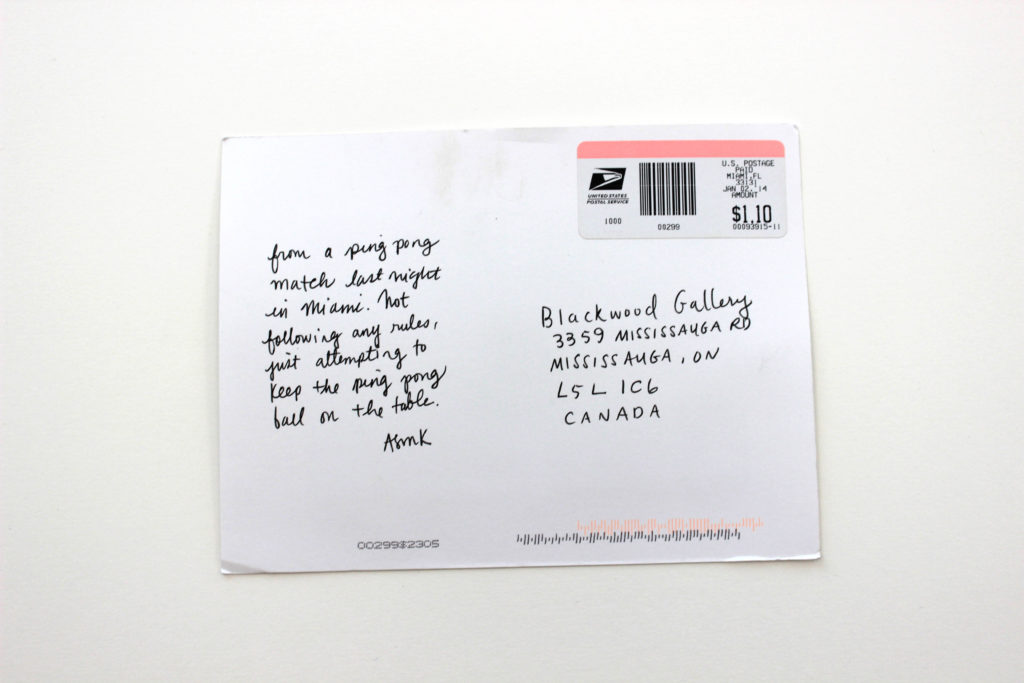 U.S. POSTAGE
PAID
MIAMI,FL
33131
JAN 02,'14
AMOUNT
$1.10
00093915-11
UNITED STATES
POSTAL SERVICE
1000
00299
from a ping pong
match last night
in Miami. Not
following any rules,
just attempting to
keep the ping pong
ball on the table.
ASMK
Blackwood Gallery
3359 MISSISSAUGA RD
MISSISSAUGA, ON
L5L 1C6
CANADA
00299$2305